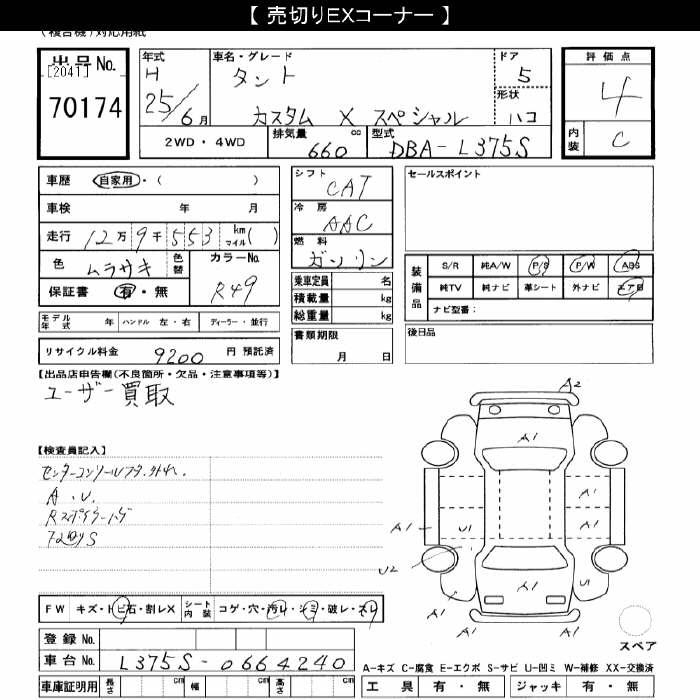 【 売切りEXコーナー 】
(複合機)対応用紙
出品No.
[2041]
70174
年式
H
25/6月
車名・グレード
タント
カスタム X スペシャル
ドア
5
形状
ハコ
評価点
4
内装
C
2WD・4WD
排気量
660
cc
型式
DBA-L375S
車歴
自家用・( )
車検 年 月
走行 12万9千553 km マイル( )
色 ムラサキ
色替
カラーNo.
R49
保証書 有・無
モデル年式 年
ハンドル 左・右
ディーラー・並行
リサイクル料金 9200 円 預託済
シフト
CAT
冷房
AAC
燃料
ガソリン
乗車定員 名
積載量 kg
総重量 kg
書類期限
月 日
セールスポイント
装備品
S/R 純A/W P/S P/W ABS
純TV 純ナビ 革シート 外ナビ エアB
ナビ型番:
後日品
【出品店申告欄(不良箇所・欠品・注意事項等)】
ユーザー買取
【検査員記入】
センターコンソールフタ外れ.
A.U.
A2
A1
A1
A1
A1
U1
A1
U2
A1
U1
A1
A1
スペア
FW キズ・トビ石・割レX
シート内装
コゲ・穴・汚レ・シミ・破レ・スレ
登録No.
車台No. L375S-0664240
車庫証明用 長さ cm 幅 cm 高さ cm
A-キズ C-腐食 E-エクボ S-サビ U-凹ミ W-補修 XX-交換済
工具 有・無 ジャッキ 有・無